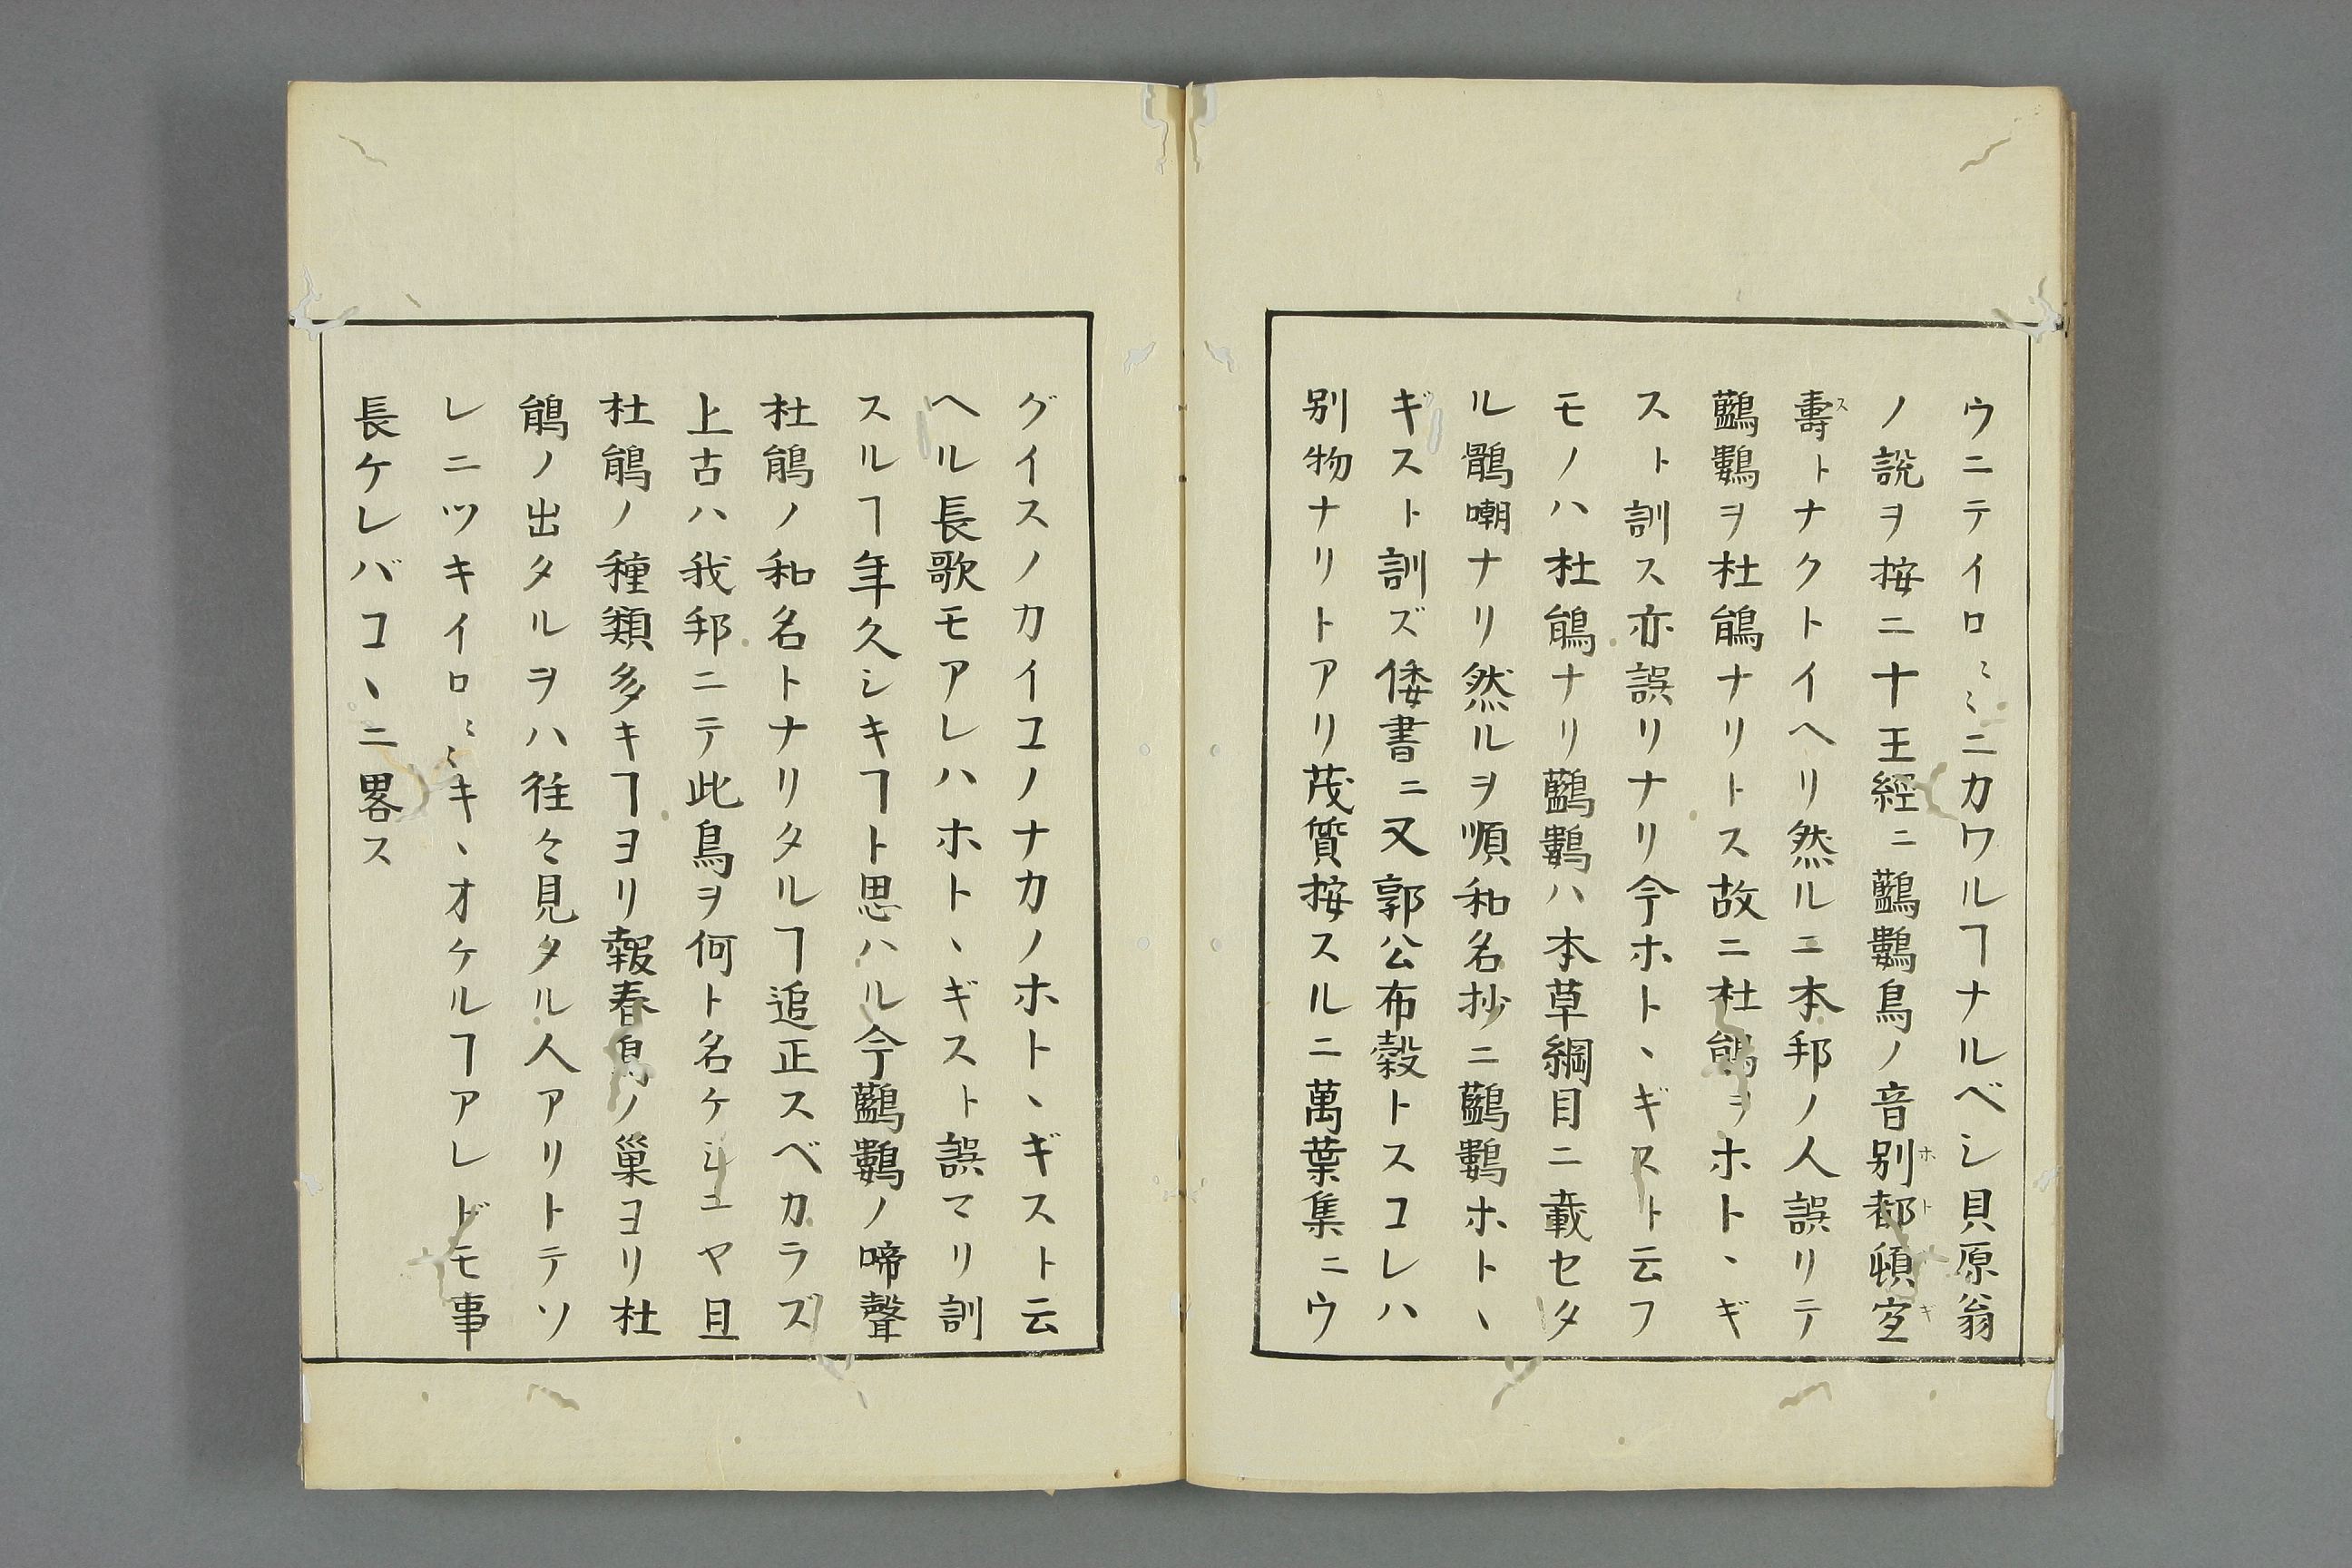 ウニテイロ〻〻ニカワルヿナルベシ貝原翁
ノ説ヲ按ニ十王經ニ鷰鸜鳥ノ音別都頓宜
壽トナクトイヘリ然ルニ本邦ノ人誤リテ
ヲ杜鵑ナリトス故ニ杜鵑ヲホトヽギ
スト訓ス亦誤リナリ今ホトヽギスト云フ
モノハ杜鵑ナリハ本草綱目ニ載セタ
ル鶻嘲ナリ然ルヲ順和名抄ニホトヽ
ギスト訓ズ倭書ニ又郭公布穀トスコレハ
別物ナリトアリ茂質按スルニ萬葉集ニウ
グイスノカイコノナカノホトヽギスト云
ヘル長歌モアレハホトヽギスト誤マリ訓
スルヿ年久シキヿト思ハル今ノ啼聲
杜鵑ノ和名トナリタルヿ追正スベカラズ
上古ハ我邦ニテ此鳥ヲ何ト名ケシニヤ且
杜鵑ノ種類多キヿヨリ報春鳥ノ巣ヨリ杜
鵑ノ出タルヲハ往々見タル人アリトテソ
レニツキイロ〻〻キヽオケルヿアレドモ事
長ケレバコヽニ畧ス